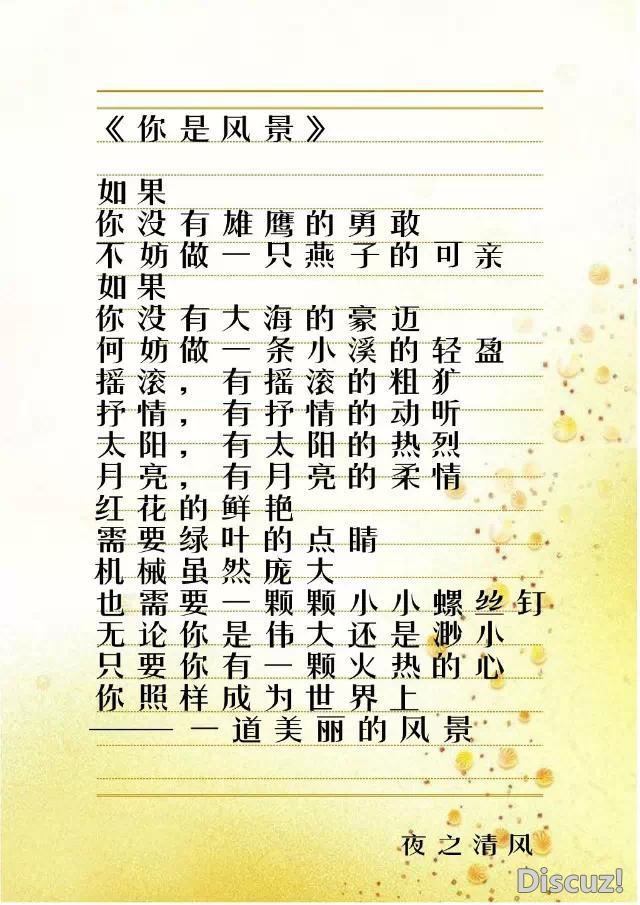 《你是风景》
如果
你没有雄鹰的勇敢
不妨做一只燕子的可亲
如果
你没有大海的豪迈
何妨做一条小溪的轻盈
摇滚，有摇滚的粗犷
抒情，有抒情的动听
太阳，有太阳的热烈
月亮，有月亮的柔情
红花的鲜艳
需要绿叶的点睛
机械虽然庞大
也需要一颗颗小小螺丝钉
无论你是伟大还是渺小
只要你有一颗火热的心
你照样成为世界上
——一道美丽的风景
夜之清风
Discuz!